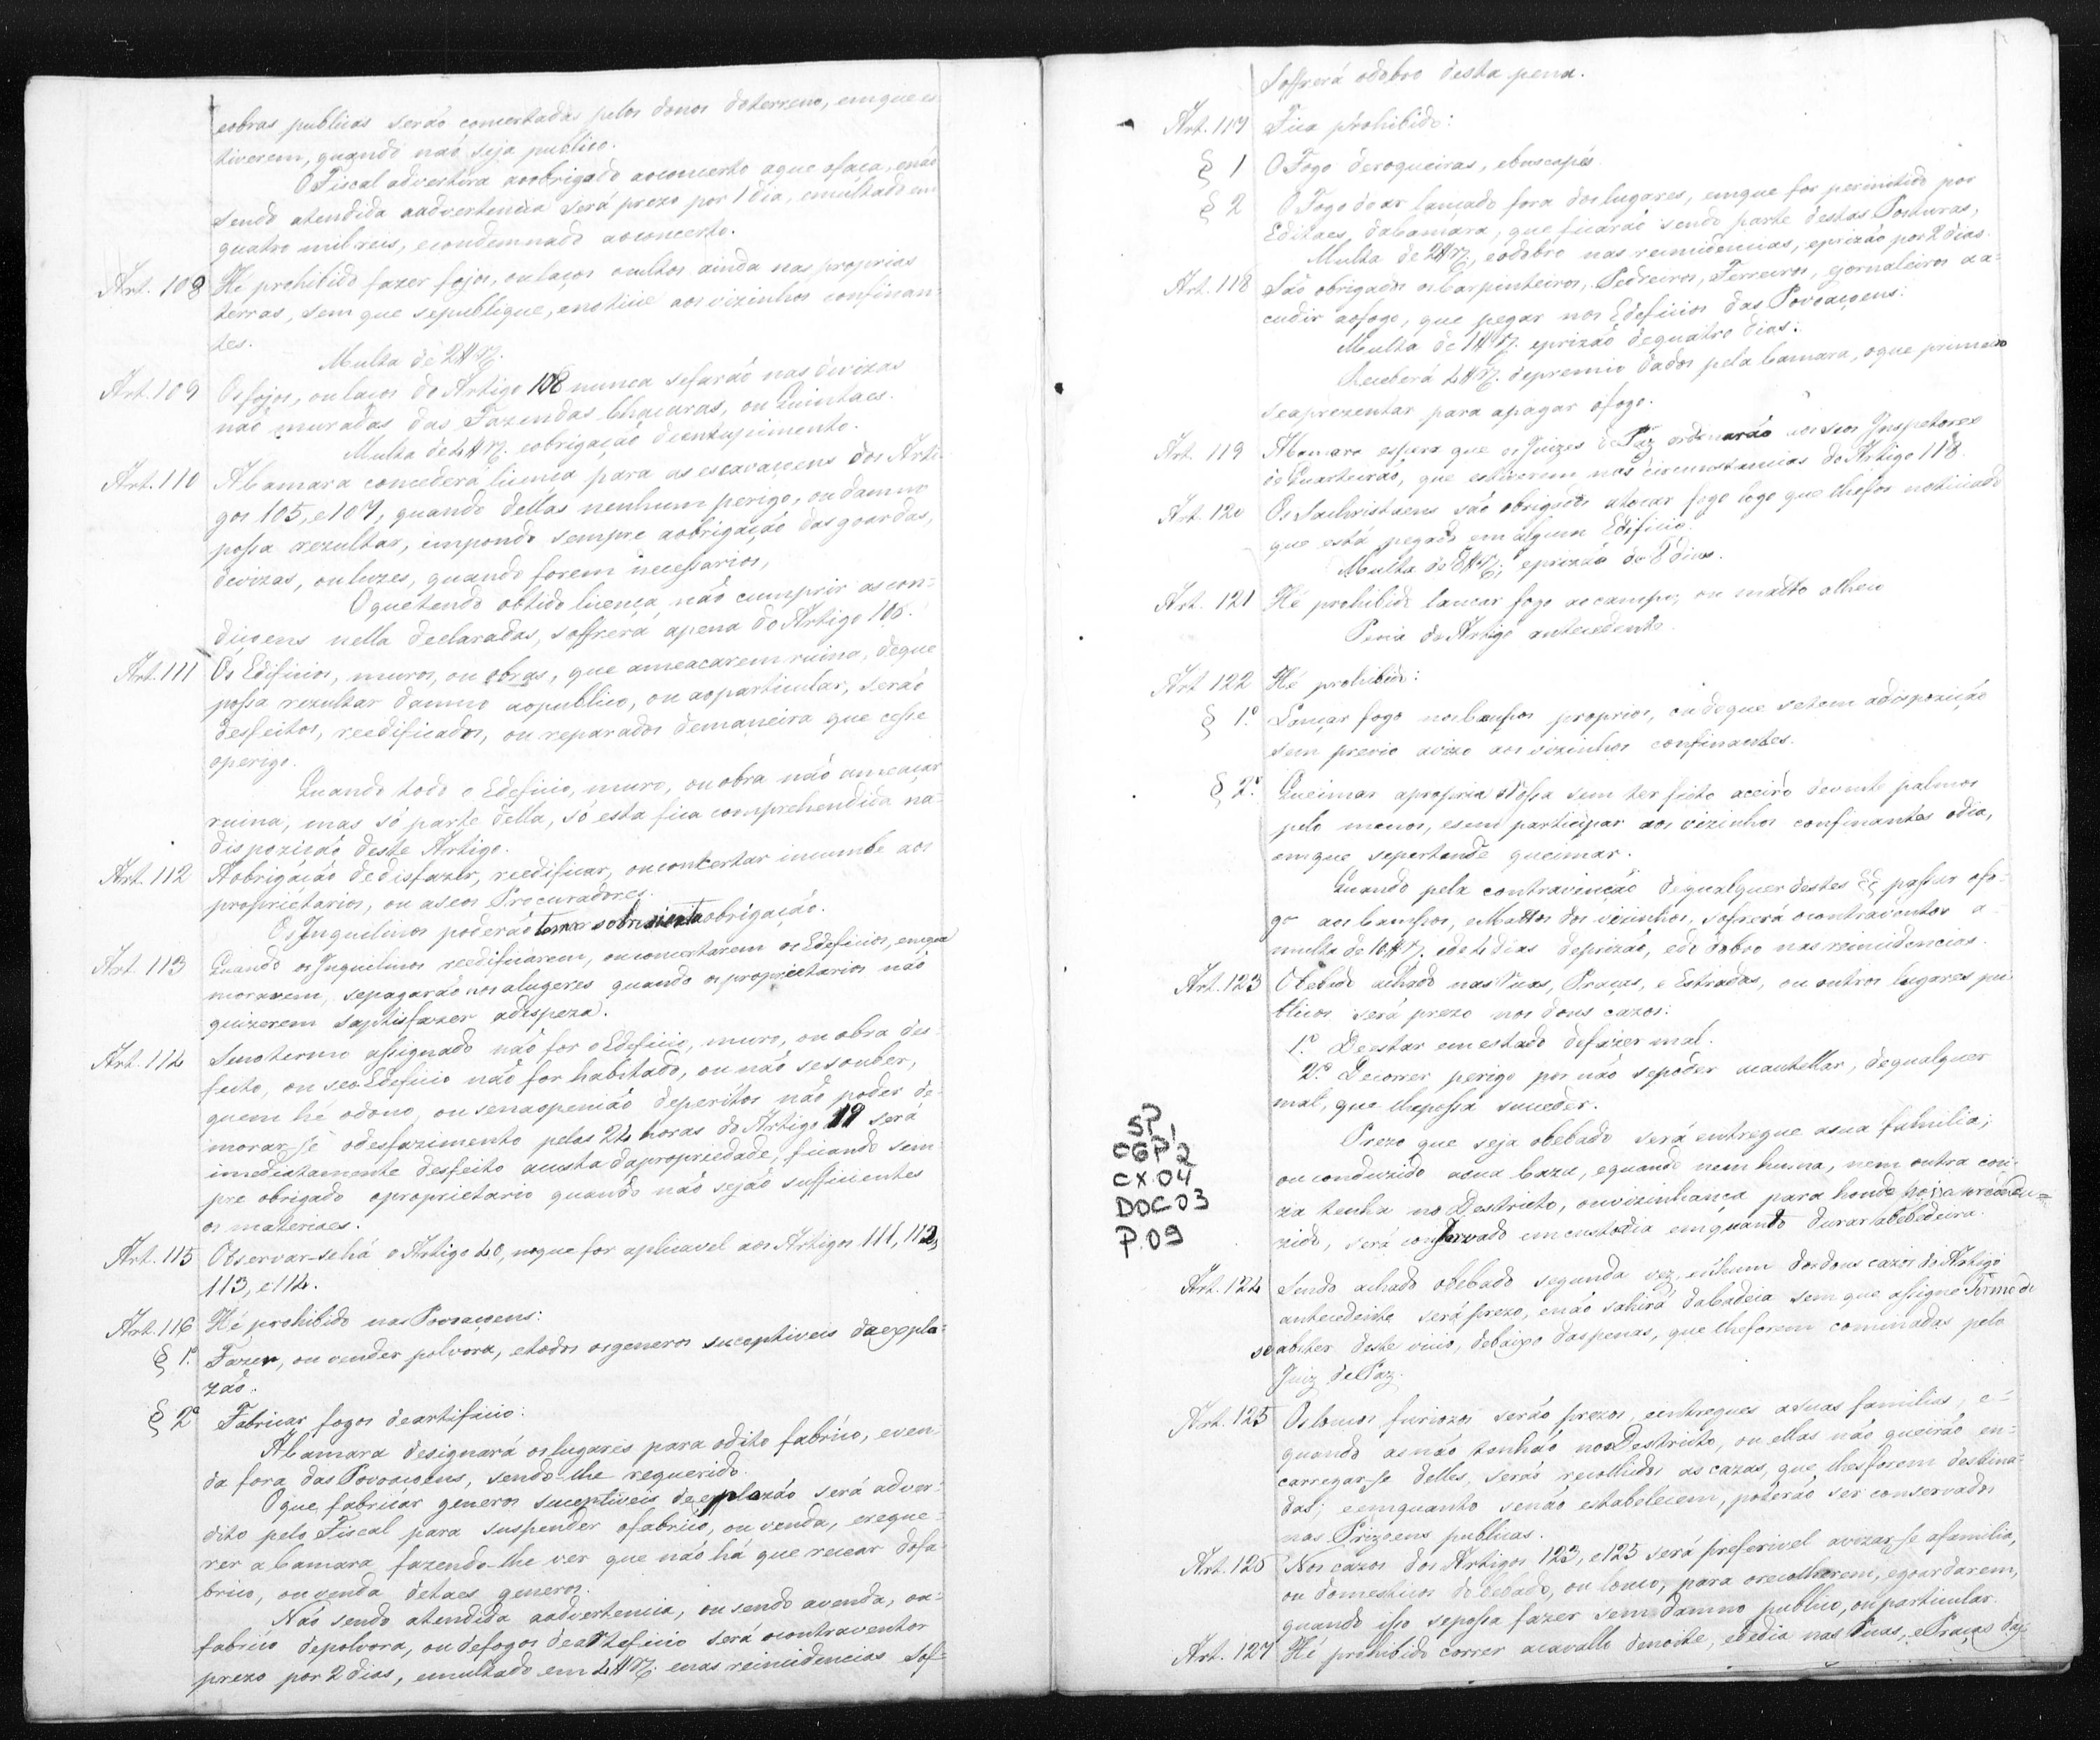 eobras publicas seráõ concertadas pelos donos doterreno, emque es
tiverem, quando naõ seja publico.
O Fiscal advertira aoobrigado aoconcerto aque ofaça, enáõ
sendo atendida aadvertencia será prezo por 1 dia, emultado em
quatro mil reis, econdemnado aoconcerto.
Art. 108 Hé prohibido fazer fojos, oulaços ocultos ainda nas proprias
terras, sem que sepublique, enoticie aos vizinhos confinan-
tes.
Multa de 2$rs.
Art. 109 Osfojos, oulaços do Artigo 108 nunca sefaráõ nas divizas
naõ muradas das Fazendas Chacaras, ou Quintaes.
Multa de 4$rs. eobrigaçáõ deentupimento.
Art. 110 A Camara concederá licença para as escavaçoens dos Arti-
gos 105, e107, quando dellas nenhum perigo, ou damno
possa rezultar, empondo sempre aobrigaçáõ das goardas,
divizas, ouluzes, quando forem necessarios,
Oquetendo obtido licença náõ cumprir ascon-
diçoens nella declaradas, soffrerá apena do Artigo 105.
Art. 111 Os Edificios, muros, ou obras, que ameaçarem ruina, deque
possa rezultar damno aopublico, ou aoparticular, seráõ
desfeitos, reedificados, ou reparados demaneira que cesse
operigo.
Quando todo o Edeficio, muro, ouobra náõ ameaçar
ruina, mas só parte della, só esta fica comprehendida na-
dispoziçáõ deste Artigo.
Art. 112 Aobrigáçáõ dedisfazer, reedificar, ouconcertar incumbe aos
proprietarios, ou aseos Procuradores.
Os Inquilinos poderáõ tomar sobre si esta obrigaçáõ.
Art. 113 Quando os Inquilinos reedificarem, ouconcertarem os Edeficios, emque
morarem, sepagaráõ nos alugeres quando os proprietarios náõ
quizerem saptisfazer adespeza.
Art. 114 Senotermo assignado náõ for oEdeficio, muro, ou obra des-
feito, ou seoEdeficio náõ for habitado, ou náõ sesouber,
quem hé odono, ou senaopeniáõ deperitos náõ poder de-
morar-se odesfazimento pelas 24 horas do Artigo 19 será
imediatamente desfeito acusta dapropriedade, ficando sem-
pre obrigado oproprietario quando náõ sejáõ sufficientes
os materiaes.
Art. 115 Observar-sehá o Artigo 40, noque for aplicavel aos Artigos 111, 112,
113, e114.
Art. 116 Hé prohibido nas Povoaçoens:
§ 1.º Fazer, ou vender polvora, etodos osgeneros suceptiveis daexplo-
záõ.
§ 2º Fabricar fogos deartificio:
A Camara designará oslugares para odito fabrico, even-
da fora das Povoaçoens, sendo-lhe requerido.
Oque fabricar generos suceptiveis deexplozáõ será adver-
dito pelo Fiscal para suspender ofabrico, ou venda, ereque-
rer a Camara fazendo-lhe ver que náõ há que recear dofa-
brico, ouvenda detaes generos.
Náõ sendo atendida aadvertencia, ou sendo avenda, ou-
fabrico depolvora, ou defogos deartificio será ocontraventor
prezo por 2 dias, emultado em 4$rs. enas reincidencias sof-
Soffrerá odobro desta pena.
Art. 117 Fica prohibido:
§ 1 O Fogo deroqueiras, ebuscapés.
§ 2 O Fogo doar lançado fora dos lugares, emque for permitido por
Editaes daCamara, que ficaráõ sendo parte destas Posturas,
Multa de 2$rs, eodobro nas reincidencias, eprizáõ por 2 dias.
Art. 118 Sáõ obrigados osCarpinteiros, Pedreiros, Ferreiros, ejornaleiros aa-
cudir aofogo, que pegar nos Edeficios das Povoaçoens:
Multa de 1$rs. eprizáõ dequatro dias:
Receberá 4$rs. depremio dados pela Camara, oque primeiro
seaprezentar para apagar ofogo.
Art. 119 A Camara espera que osJuizes de Paz ordenaráõ aos seos Inspetores
de Quarteiráõ, que estiverem nas circumstancias do Artigo 118.
Art. 120 Os Sachristaens sáõ obrigados atocar fogo logo que lhefor noticiado
que está pegado em algum Edificio.
Multa de 8$rs; eprizáõ de 8 dias.
Art. 121 Hé prohibido lançar fogo aocampo, ou matto alheio
Pena do Artigo antecedente.
Art 122 Hé prohibido:
§ 1.º Lançar fogo nosCampos proprios, oudeque setem adispoziçáõ
sem previo avizo aos vizinhos confinantes.
§ 2.º Queimar apropria Rossa sem ter feito aceiro devinte palmos
pelo menos, esem participar aos vizinhos confinantes odia,
emque sepertende queimar.
Quando pela contravençáõ dequalquer destes §§ passar ofo-
go aos Campos, eMattos dos vizinhos, sofrerá ocontraventor a
multa de 10$rs. ede 4 dias deprizáõ, edo dobro nas reincidencias.
Art. 123 Obebido achado nasRuas, Praças, e Estradas, ou outros lugares pu-
blicos será prezo nos dous cazos:
1.º Deestar emestado defazer mal.
2.º Decorrer perigo por náõ sepoder acautellar, dequalquer
mal, que lhepossa suceder.
Prezo que seja obebado será entregue asua familia;
ou conduzido asua Caza, equando nemhuma, nem outra cou-
za tenha no Destricto, ouvizinhança para honde seja condu-
zido, será conservado emcustodia emquanto durar abebedeira.
SP
CGP1
2
CX.04
DOC03
P.09
Art. 124 Sendo achado obebado segunda vez emhum dosdous cazos do Artigo
antecedente será prezo, enáõ sahirá daCadeia sem que assigne Termo de
seabster deste vicio, debaixo daspenas, que lheforem cominadas pelo
Juiz dePaz.
Art. 125 Oslouços furiozos seráõ prezos eentregues asuas familias, e-
quando asnáõ tenháõ nosDestricto, ou ellas náõ queiráõ en-
carregar-se delles, seráõ recolhidos as cazas, que lhesforem destina-
das; eemquanto senáõ estabelecem, poderáõ ser conservados
nas Prizoens publicas.
Art. 126 Nos cazos dos Artigos 123, e125 será preferivel avizar-se afamilia,
ou domesticos dobebado, ou louco, para orecolherem, egoardarem,
quando isso sepossa fazer sem damno publico, ouparticular.
Art. 127 Hé prohibido correr acavallo denoite, ededia nas Ruas, ePraças das